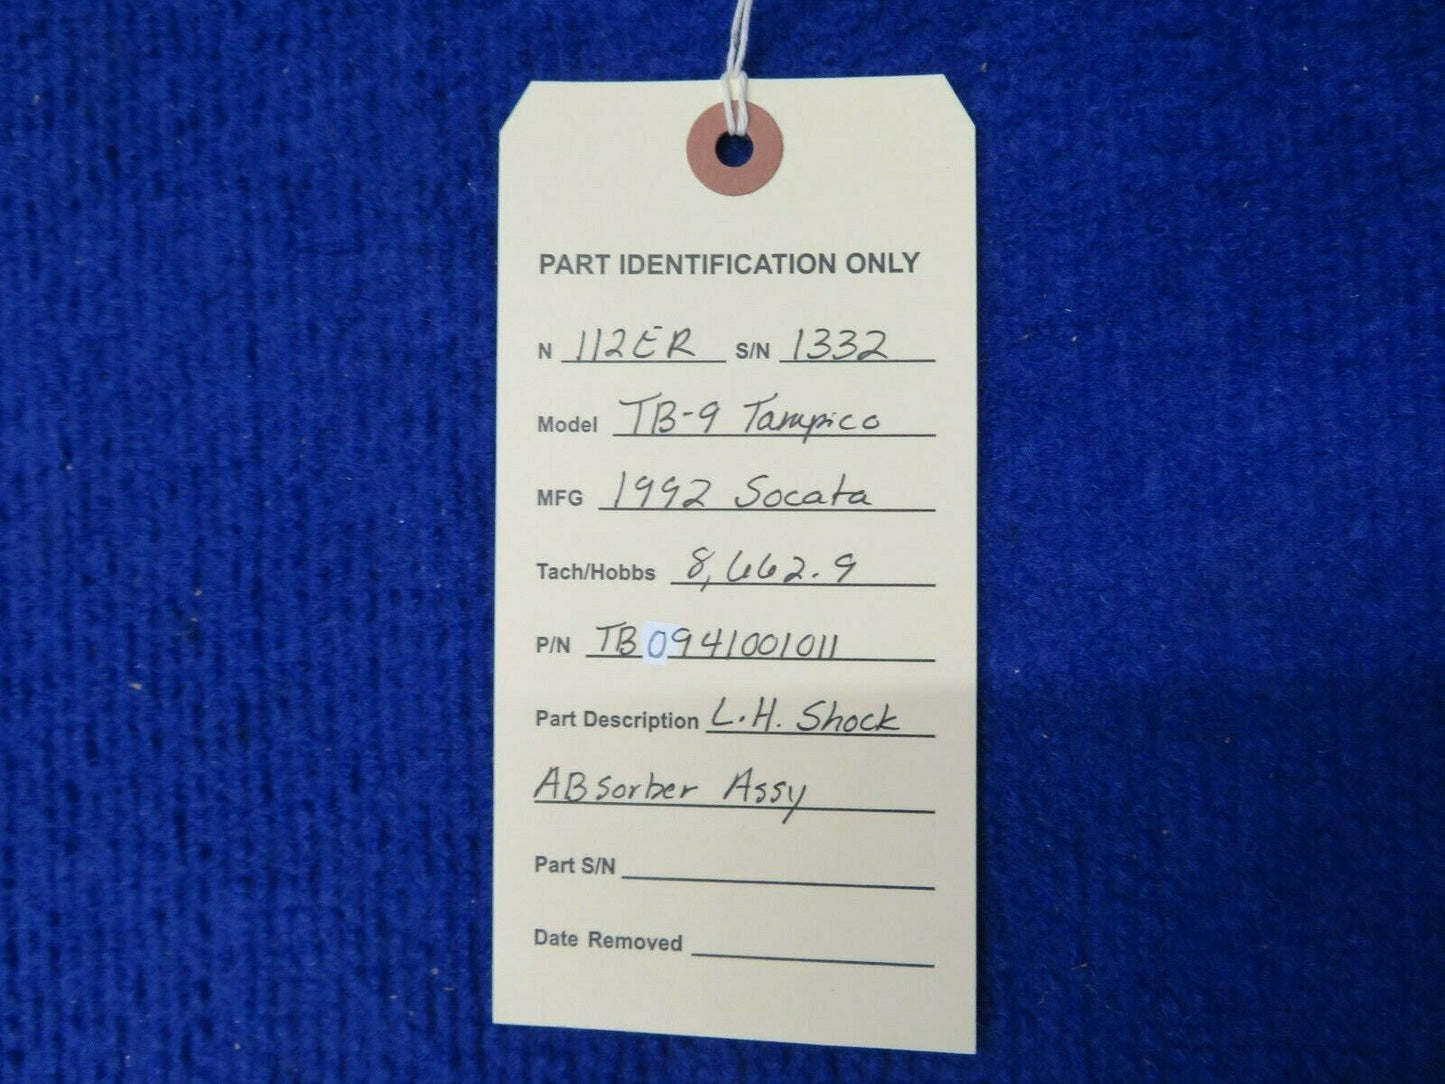 PART IDENTIFICATION ONLY
N 112ER S/N 1332
Model TB-9 Tampico
MFG 1992 Socata
Tach/Hobbs 8,662.9
P/N TB0941001011
Part Description L.H. Shock
ABsorber Assy
Part S/N
Date Removed